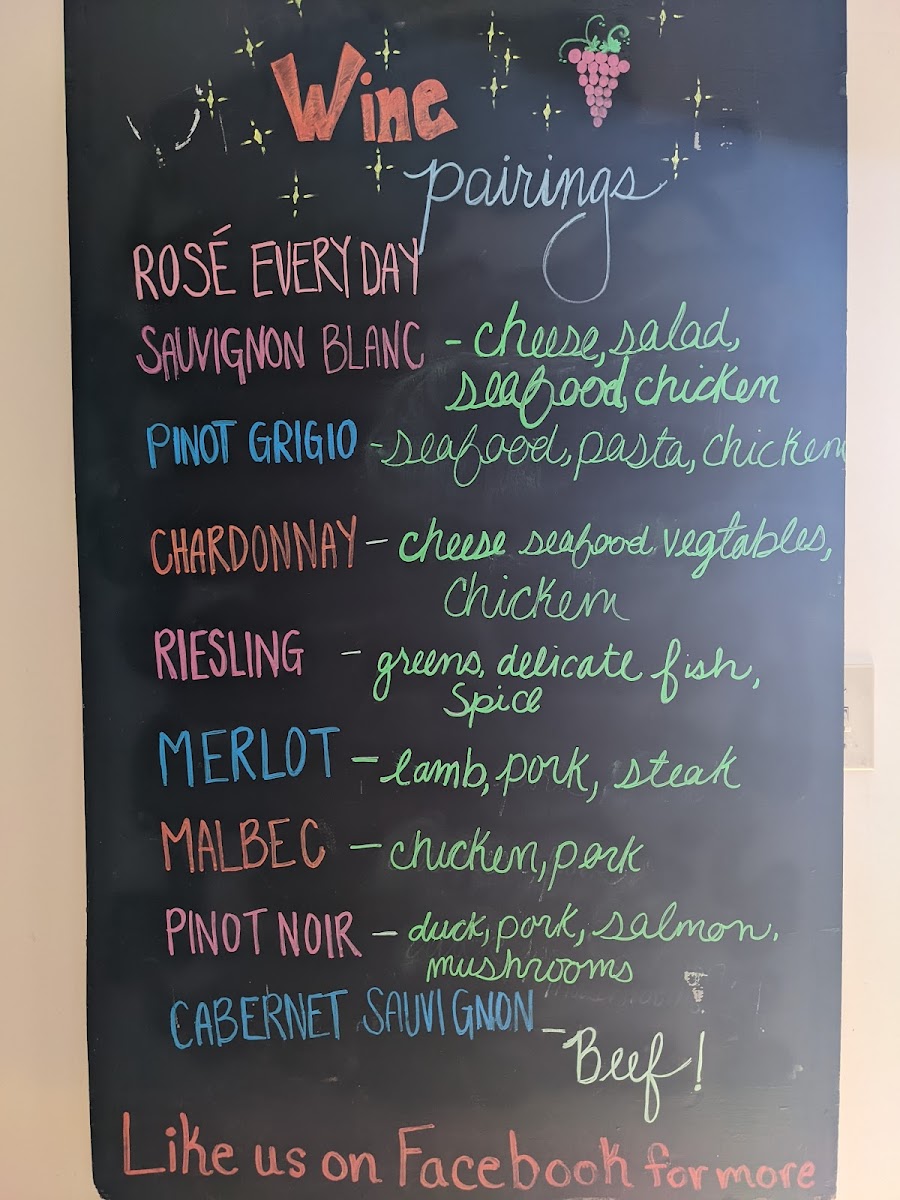 Wine
pairings
ROSÉ EVERY DAY
SAUVIGNON BLANC - cheese, salad,
seafood, chicken
PINOT GRIGIO - seafood, pasta, chicken
CHARDONNAY - cheese seafood vegtables,
chicken
RIESLING - greens, delicate fish,
Spice
MERLOT - lamb, pork, steak
MALBEC - chicken, pork
PINOT NOIR - duck, pork, salmon.
mushrooms
CABERNET SAUVIGNON -
Beef!
Like us on Facebook for more